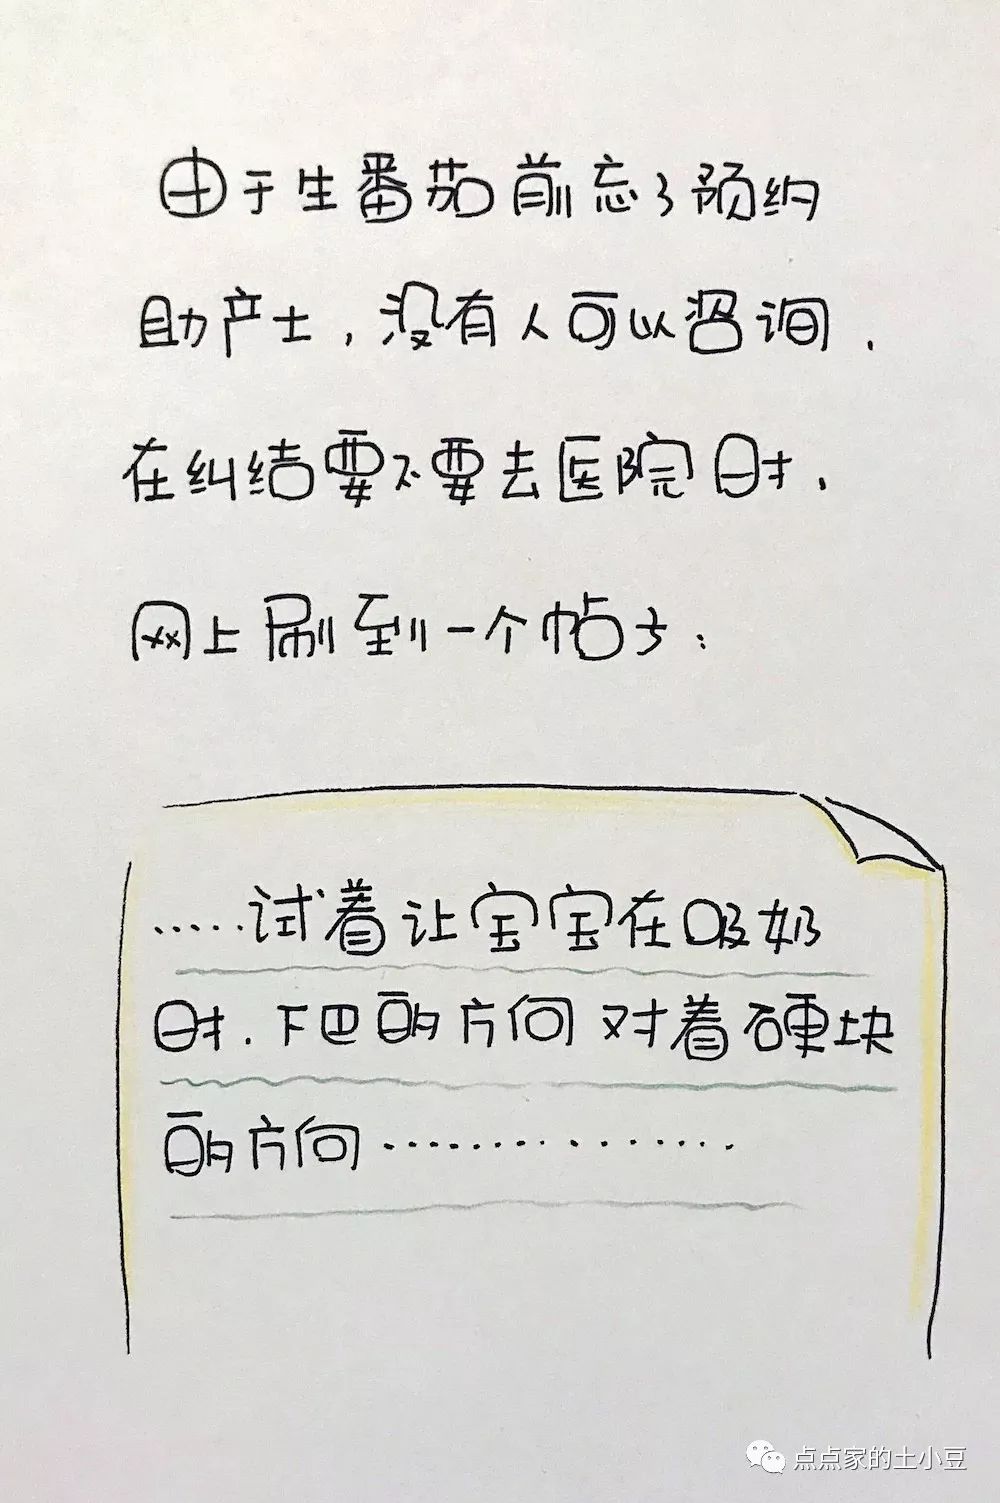 由于生番茄前忘了预约
助产士,没有人可以咨询.
在纠结要不要去医院时,
网上刷到一个帖子:
.....试着让宝宝在吸奶
时.下巴的方向对着硬块
的方向................
点点家的土小豆